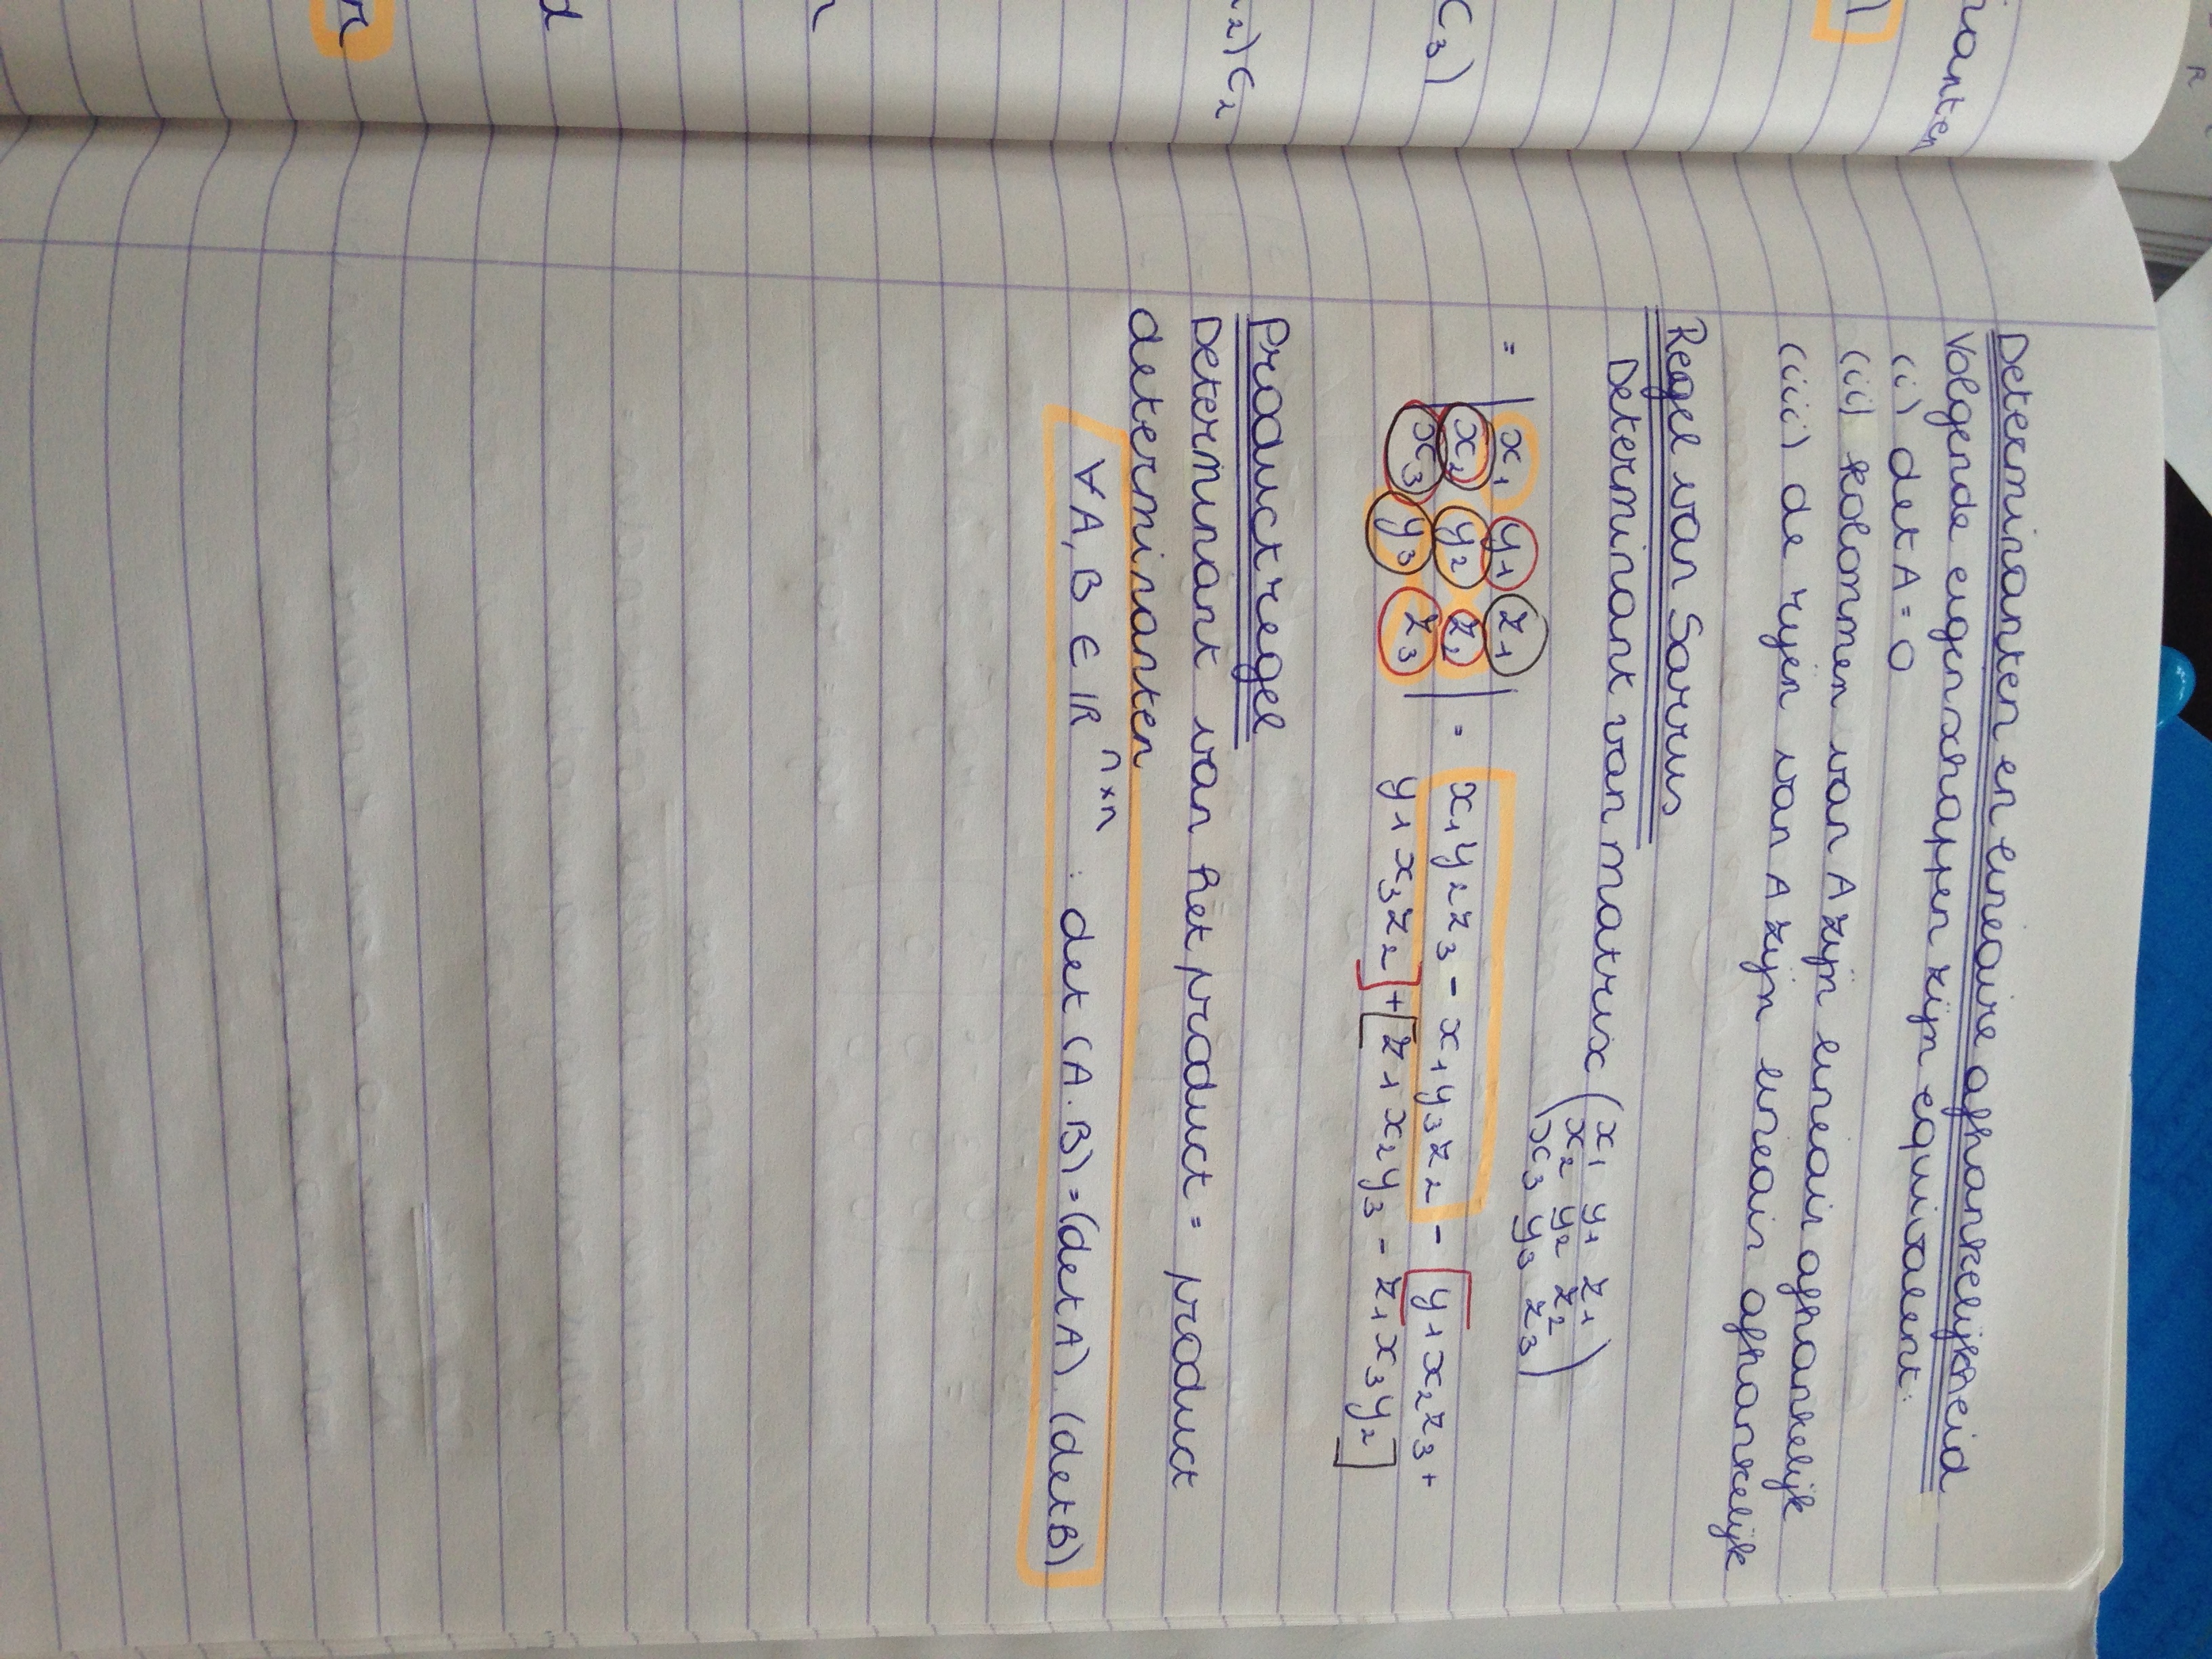 Determinanten en lineaire afhankelijkheid
Volgende eigenschappen zijn equivalent:
(i) det A = 0
(ii) kolommen van A zijn lineair afhankelijk
(iii) de rijen van A zijn lineair afhankelijk
Regel van Sarrus
Determinant van matrix ( x1 y1 z1
x2 y2 z2
x3 y3 z3 )
= | x1 y1 z1
x2 y2 z2
x3 y3 z3 | = x1y2z3 - x1y3z2 - [y1x2z3 +
y1x3z2] + [z1x2y3 - z1x3y2]
Productregel
Determinant van het product = product
determinanten
∀A, B ∈ ℝ^n×n : det (A.B) = (det A) . (det B)
C3)
2) C2
d